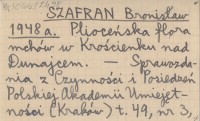 SZAFRAN Bronisław
1948a. Plioceńska flora
mchów w Krościenku nad
Dunajcem. — Sprawozda-
nia z Czynności i Posiedzeń
Polskiej Akademii Umiejęt-
ności (Kraków) t. 49, nr 3,